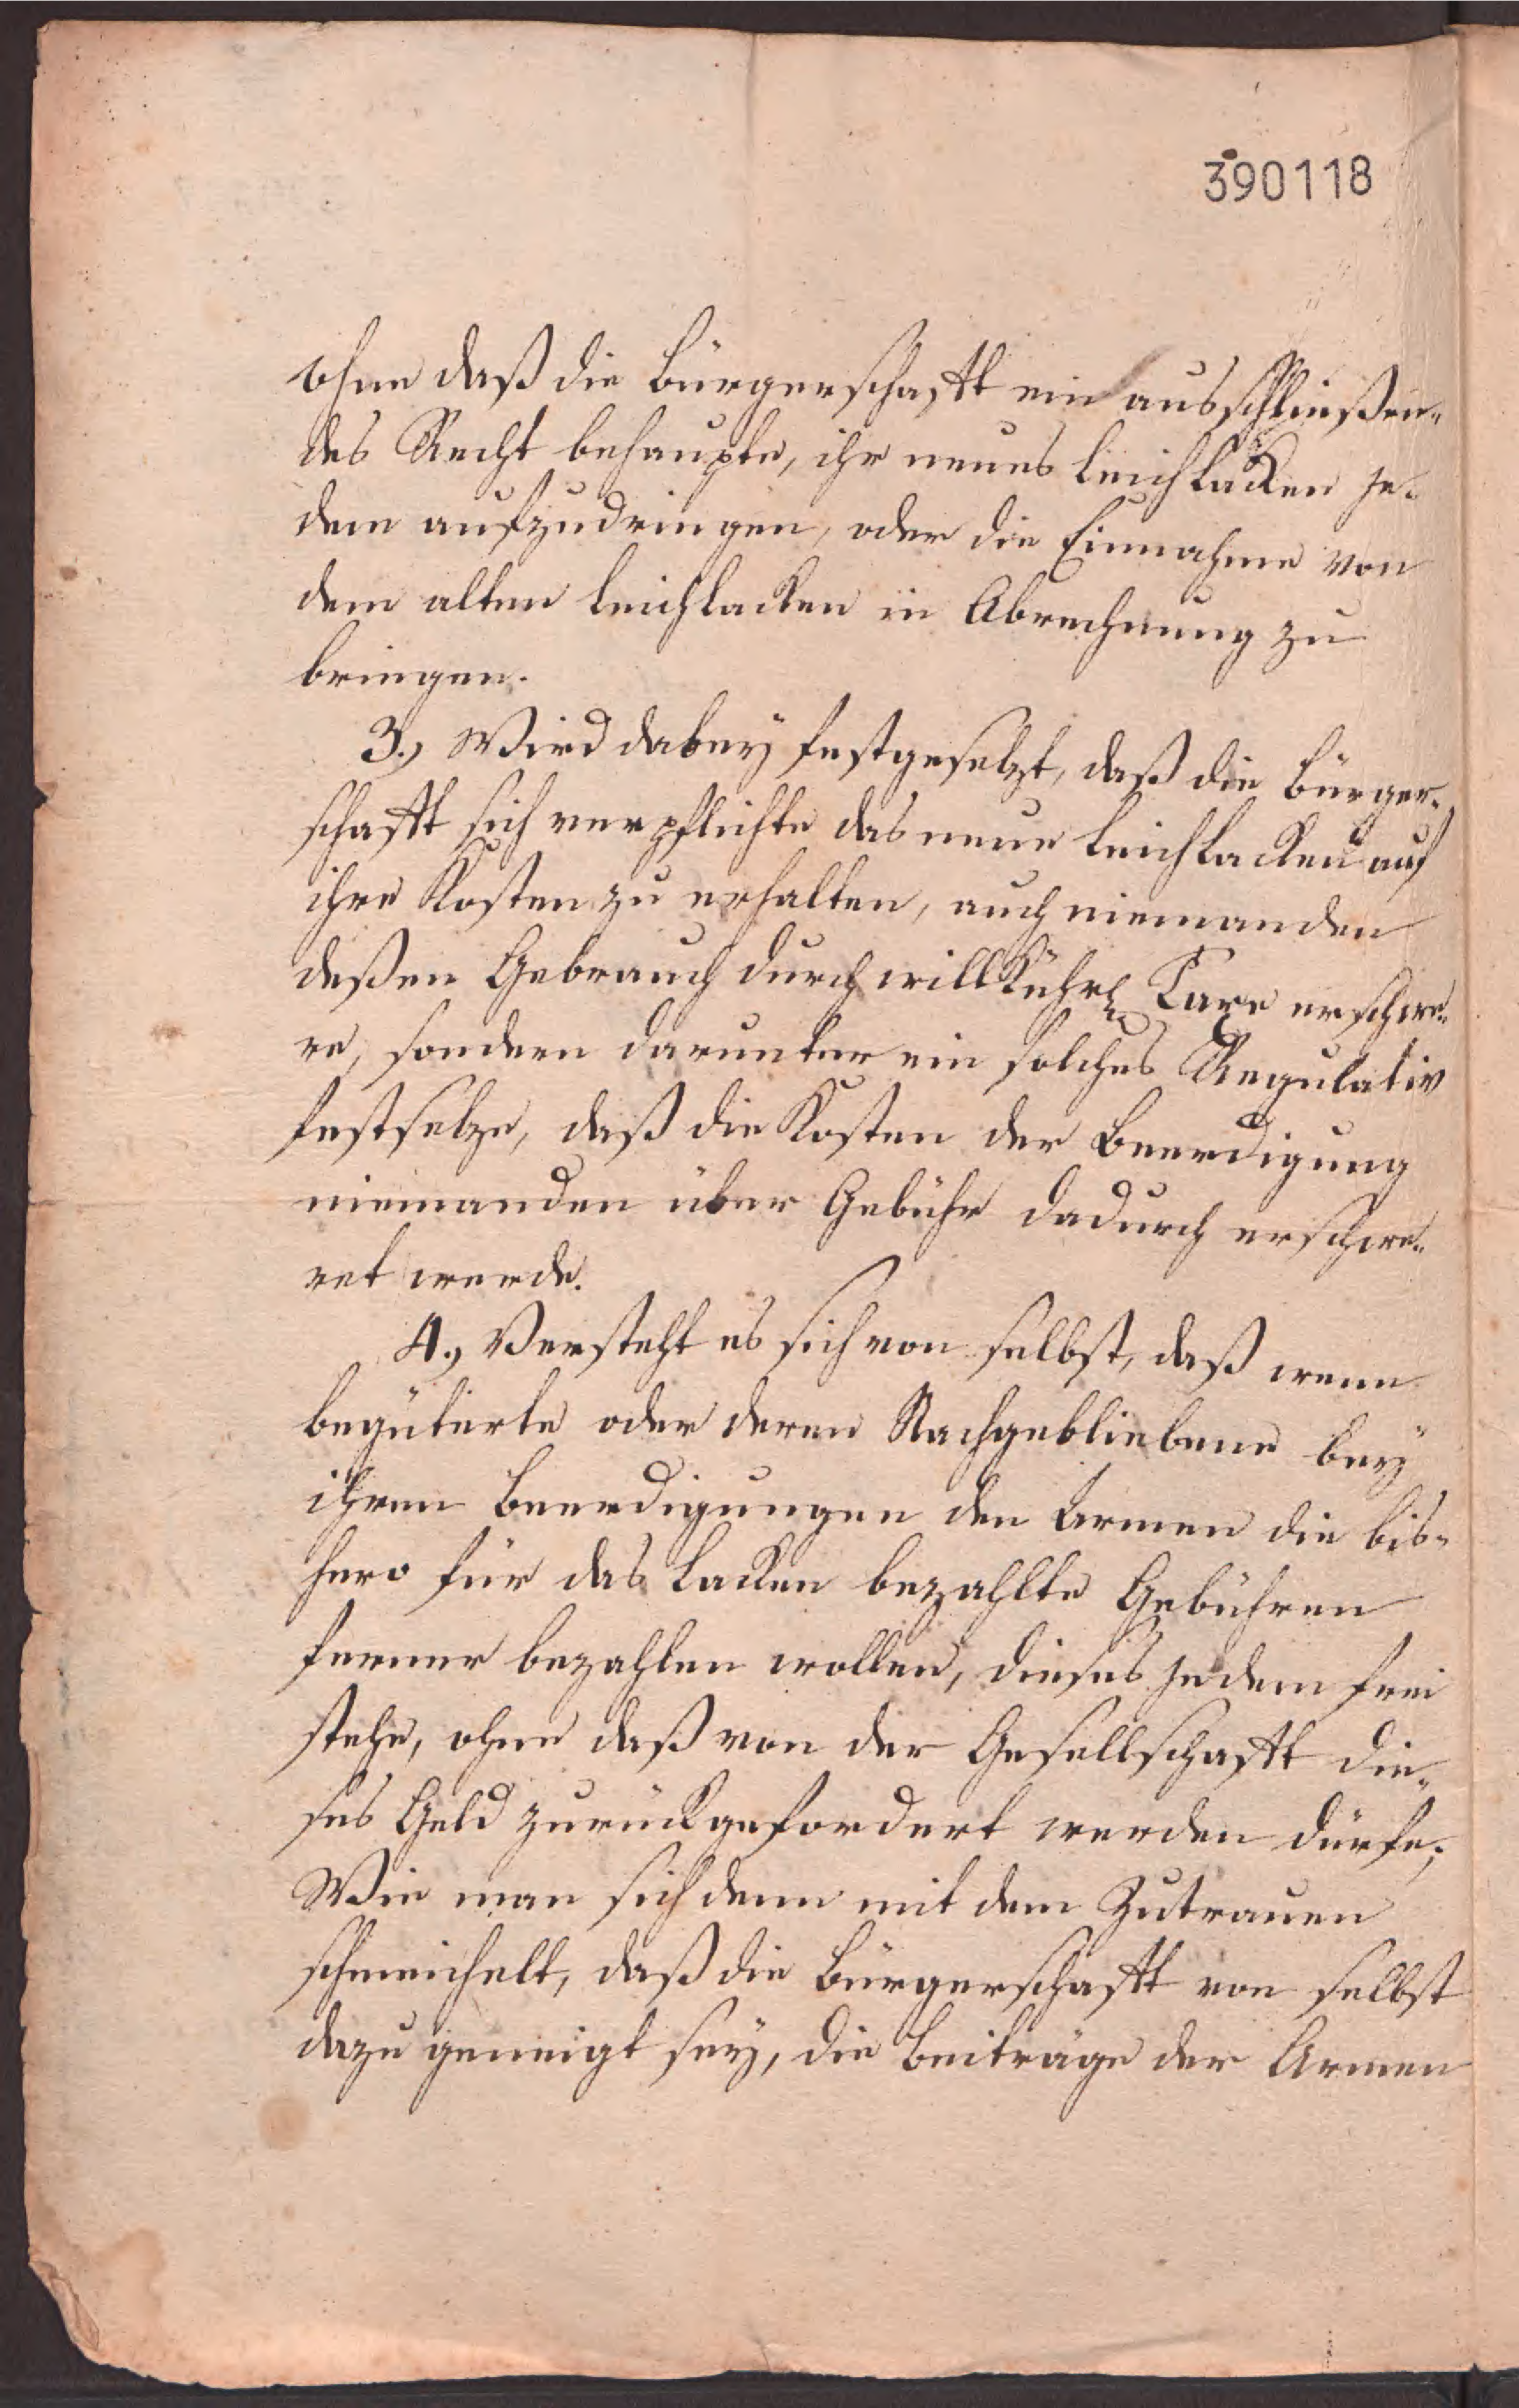 390118
ohne daß die Bürgerschafft ein ausschließen-
des Recht behaupte, ihr neues Leichlacken je-
dem aufzudringen, oder die Einnahme von
dem alten Leichlacken in Abrechnung zu
bringen.
3., Wird dabey festgesetzt, daß die Bürger-
schafft sich verpflichte das neue Leichlacken auf
ihre Kosten zu erhalten, auch niemanden
deßen Gebrauch durch willkührl. Taxe erschwe-
re, sondern darunter ein solches Regulativ
festsetze, daß die Kosten der Beerdigung
niemanden über Gebühr dadurch erschwe-
ret werde.
4., Versteht es sich von selbst, daß wenn
begüterte oder deren Nachgebliebene bey
ihren Beerdigungen den Armen die bis-
hero für das Lacken bezahlte Gebühren
ferner bezahlen wollen, dieses jedem frei
stehe, ohne daß von der Gesellschafft die-
ses Geld zurückgefordert werden dürfe;
Wie man sich denn mit dem Zutrauen
schmeichelt, daß die Bürgerschafft von selbst
dazu geneigt sey, die Beiträge der Armen